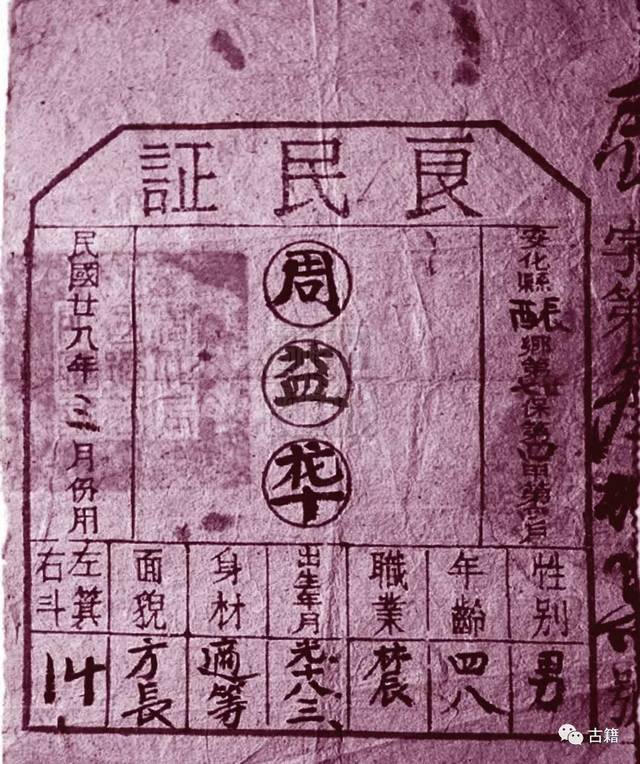 良民証
安化縣
鄉第 保第四甲第 戶
周益
民國廿九年三月份用
性别
男
年齡
四八
職業
出生年月
光十八三
身材
適等
面貌
方長
左箕
右斗
14
字第
号
古籍